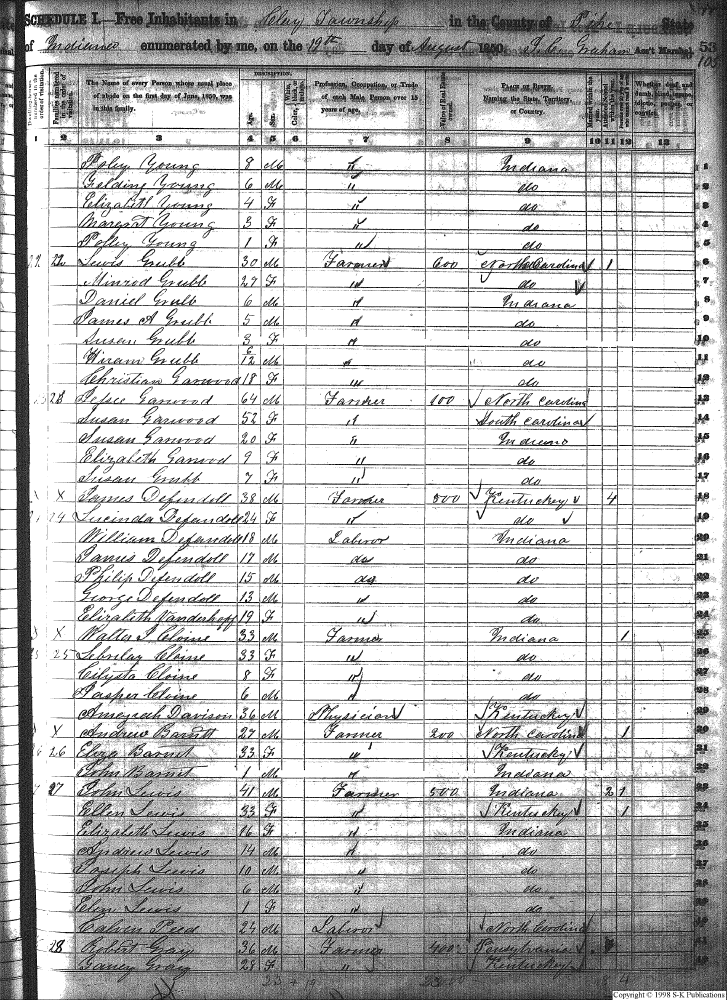 SCHEDULE I.—Free Inhabitants in Clay Township in the County of Pike State
of Indiana enumerated by me, on the 19th day of August 1850. Graham Ass't Marshal. 53
The Name of every Person whose usual place of abode on the first day of June, 1850, was in this family.
DESCRIPTION.
Age. Sex.
Profession, Occupation, or Trade of each Male Person over 15 years of age.
Value of Real Estate owned.
PLACE OF BIRTH. Naming the State, Territory, or Country.
1 2 3 4 5 6 7 8 9 10 11 12 13
Young 8 M " Indiana 1
Young 6 M " do 2
Elizabeth Young 4 F " do 3
Margrat Young 3 F " do 4
Polley Young 1 F " do 5
22 Lewis Grubb 30 M Farmer 600 North Carolina 1 6
Grubb 27 F " do 7
Daniel Grubb 6 M " Indiana 8
James A Grubb 5 M " do 9
Susan Grubb 3 F " do 10
Hiram Grubb 6/12 M " do 11
Christian Garwood 18 F " do 12
23 Garwood 64 M Farmer 100 North Carolina 13
Susan Garwood 52 F " South Carolina 14
Susan Garwood 20 F " Indiana 15
Elizabeth Garwood 9 F " do 16
Susan Grubb 7 F " do 17
X James Defendoll 38 M Farmer 500 Kentuckey 4 18
24 Lucinda Defandoll 24 F " do 19
William Defandoll 18 M Laberor Indiana 20
James Defendoll 17 M do do
Philip Defendoll 15 M do do
George Defendoll 13 M " do
Elizabeth Vanderhoff 19 F " do
X Walter Cloine 33 M Farmer Indiana 1
25 Cloine 33 F " do
Cloine 8 F " do
Jasper Cloine 6 M " do
Davison 36 M Physician Kentuckey
X Andrew Barnett 27 M Farmer 200 North Carolina 1
26 Barnet 33 F " Kentuckey
John Barnet 1 M " Indiana
27 John Lewis 41 M Farmer 500 Indiana
Ellen Lewis 33 F " Kentuckey 1
Elizabeth Lewis 16 F " Indiana
Andrew Lewis 14 M " do
Joseph Lewis 10 M " do
John Lewis 6 M " do
Elen Lewis 1 F " do
Calvin Peed 24 M Laberor North Carolina
28 Robert Gray 36 M Farmer 400 Pensylvania
Gray 28 F " Kentuckey
Copyright © 1998 S-K Publications